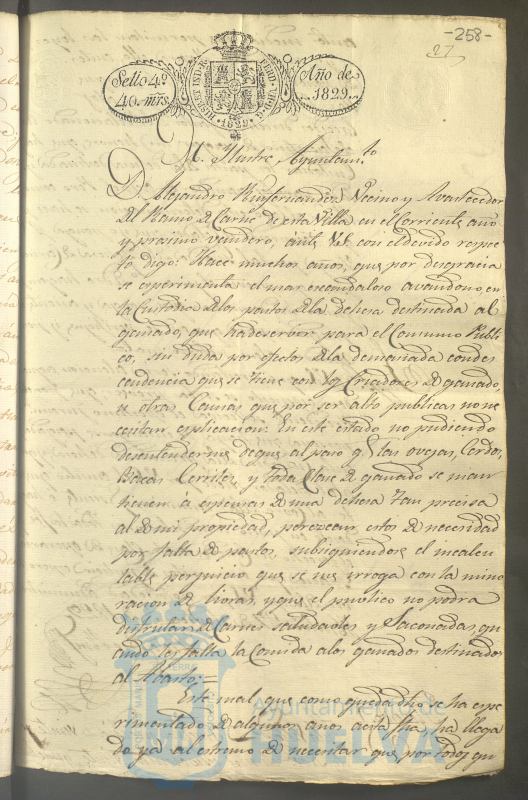 -258-
27
Sello 4.º
40. mrs.
HISPAN. ET IND. R. FERD. VII D. G.
1829
Año de
1829.
M. Ilustre Ayuntam.to
D.n Alejandro Vecino y Avastecedor
del Ramo de Carne de esta Villa en el Corriente año
y procsimo venidero, ante V.S. con el devido respe
to digo: Hace muchos años, que por desgracia
se esperimenta el mas escandaloso avandono en
la Custodia de los pastos de la dehesa destinada al
ganado, que ha de servir para el Consumo Publi
co, sin duda por efectos de la demasiada condes
cendencia que se tiene con los Criadores de ganado,
u otras Causas que por ser alto publicas no ne
cesitan esplicacion: En este estado no pudiendo
desentenderme de que al paso q.e las ovejas, Cerdos,
Bacas Cerriles, y toda Clase de ganado se man
tienen á espensas de una dehesa tan precisa
al de mi propiedad, perezcan estos de necesidad
por falta de pastos, subsiguiendose el incalcu
lable perjuicio que se nos irroga con la mino
racion de libras, y que el publico no podra
disfrutar de Carnes saludables y Saconadas, qu
ando les falta la Comida a los ganados destinados
al Abasto. =
Este mal, que como queda dho se ha espe
rimentado de algunos años acá, ha llega
do ya al estremo de necesitar que por todos qu
Ayuntamiento de
HUELVA